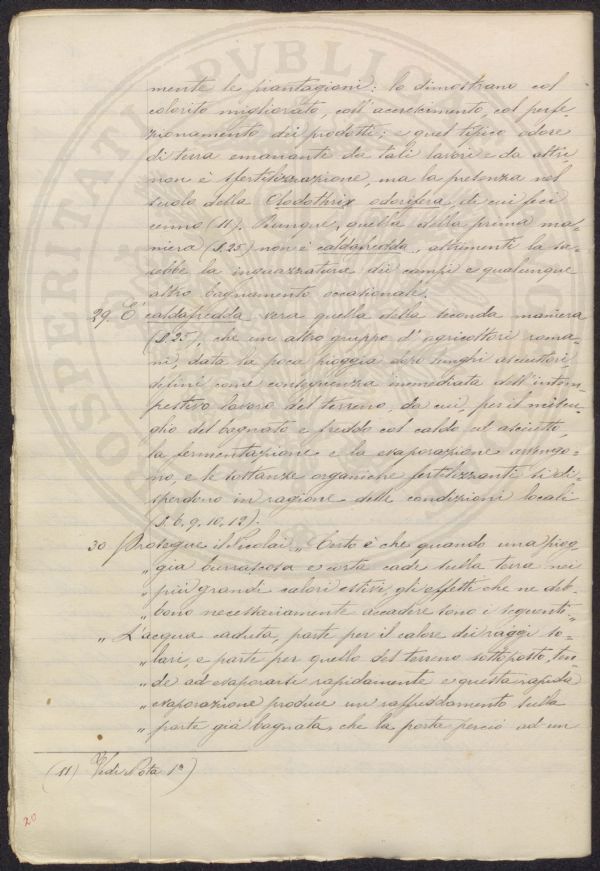 mente le piantagioni: lo dimostrano col
colorito migliorato, coll'accrescimento, col perfe-
zionamento dei prodotti; e quel tipico odore
di terra emananti da tali lavori e da altri
non è sfertilizzazione, ma la presenza nel
suolo della Clodothrix odorifera, di cui feci
cenno (11). Dunque, quella della prima ma-
niera (§.25) non è caldafredda, altrimenti la sa-
rebbe la inguazzatura dei campi e qualunque
altro bagnamento occasionale.
29. E' caldafredda vera quella della seconda maniera
(§.25), che un altro gruppo d'agricoltori roma-
ni, data la poca pioggia dopo lunghi asciuttori,
definì come conseguenza immediata dell'intem-
pestivo lavoro del terreno, da cui, per il miscu-
glio del bagnato e freddo col caldo ed asciutto,
la fermentazione e la evaporazione avvengo-
no, e le sostanze organiche fertilizzanti si di-
sperdono in ragione delle condizioni locali
(§. 6, 9, 10, 12).
30 Prosegue il Nicolai „ Certo è che quando una piog-
„ gia burrascosa e corta cade sulla terra nei
„ più grandi calori estivi, gli effetti che ne deb-
„ bono necessariamente accadere sono i seguenti.
„ L'acqua caduta, parte per il calore dei raggi so-
„ lari, e parte per quello del terreno sottoposto, ten-
„ de ad evaporarsi rapidamente e questa rapida
„ evaporazione produce un raffreddamento sulla
„ parte già bagnata, che la porta perciò ad un
(11) Vedi Nota 1ª)
20
PROSPERITATI PVBLICAE